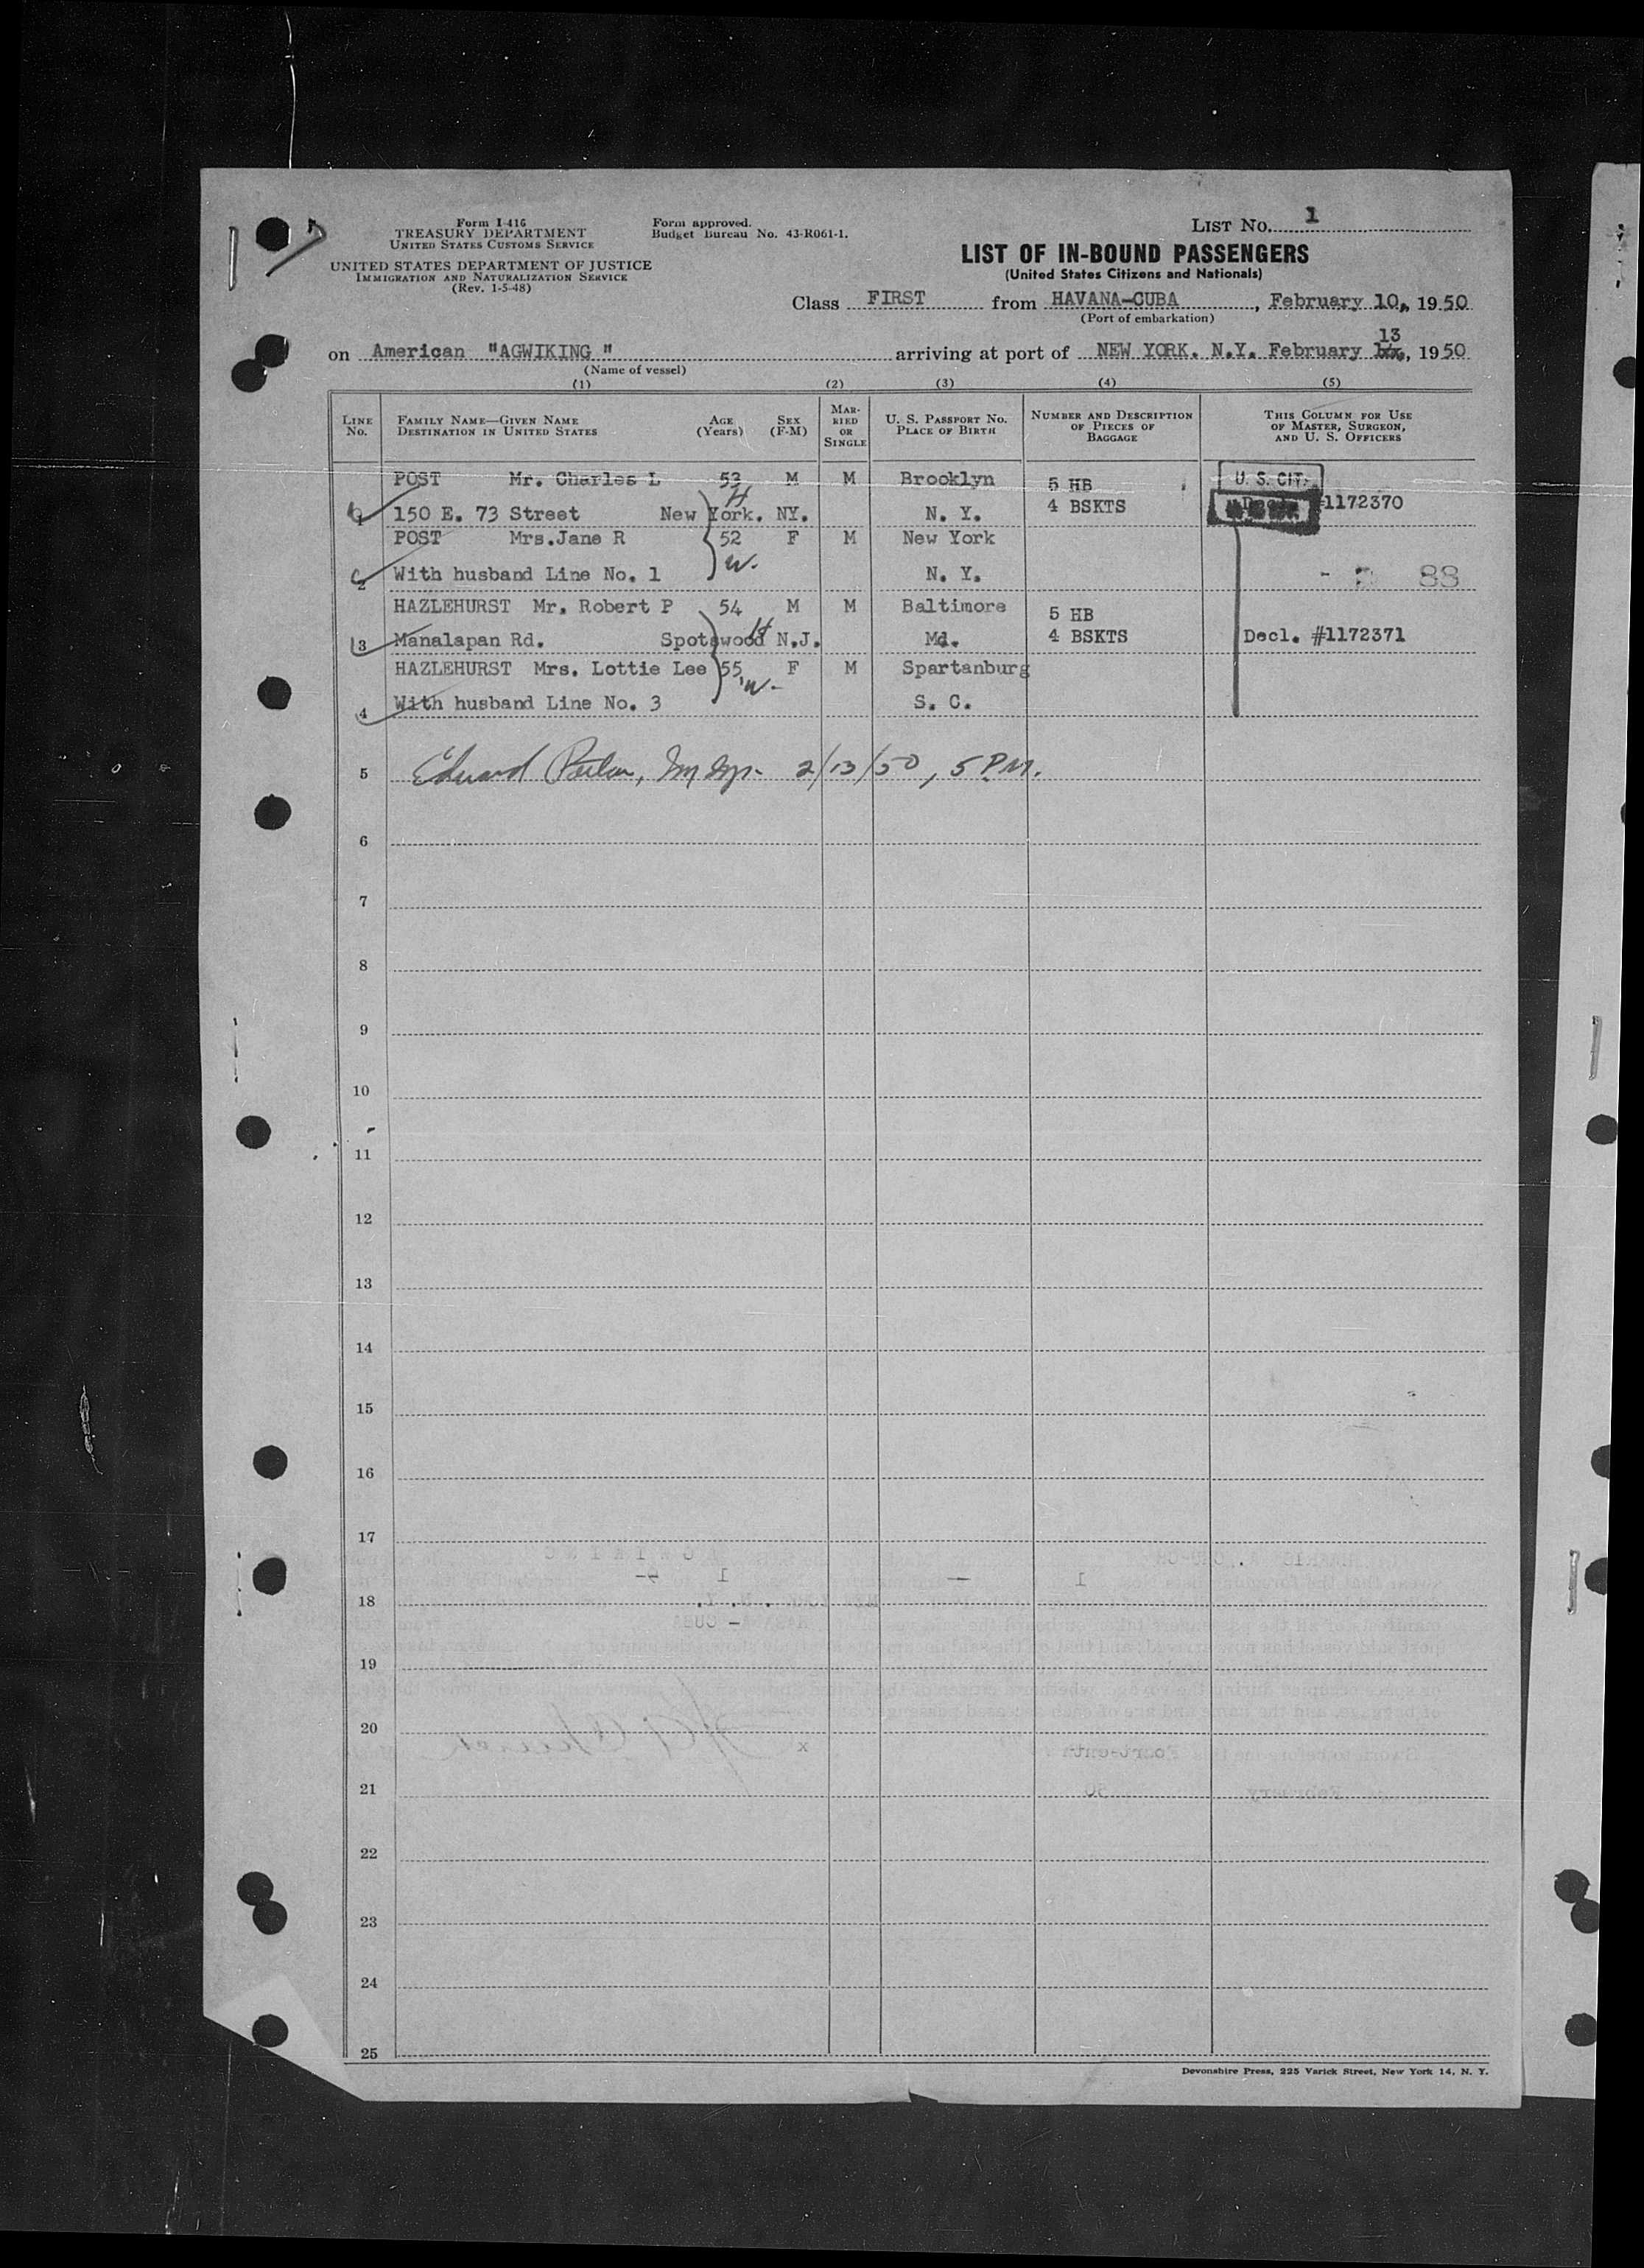 Form I-416
TREASURY DEPARTMENT
UNITED STATES CUSTOMS SERVICE
UNITED STATES DEPARTMENT OF JUSTICE
IMMIGRATION AND NATURALIZATION SERVICE
(Rev. 1-5-48)
Form approved.
Budget Bureau No. 43-R061-1.
LIST No. 1
LIST OF IN-BOUND PASSENGERS
(United States Citizens and Nationals)
Class FIRST from HAVANA-CUBA, February 10, 1950
(Port of embarkation)
13
on American "AGWIKING " arriving at port of NEW YORK. N.Y. February , 1950
(Name of vessel)
(1) (2) (3) (4) (5)
LINE No.
FAMILY NAME—GIVEN NAME
DESTINATION IN UNITED STATES
AGE (Years)
SEX (F-M)
MARRIED OR SINGLE
U. S. PASSPORT No.
PLACE OF BIRTH
NUMBER AND DESCRIPTION OF PIECES OF BAGGAGE
THIS COLUMN FOR USE OF MASTER, SURGEON, AND U. S. OFFICERS
POST Mr. Charles L 53 M M Brooklyn 5 HB U. S. CIT.
H
1 150 E. 73 Street New York. NY. N. Y. 4 BSKTS #1172370
POST Mrs.Jane R 52 F M New York
W.
2 With husband Line No. 1 N. Y. 88
HAZLEHURST Mr. Robert P 54 M M Baltimore 5 HB
H
3 Manalapan Rd. Spotswood N.J. Md. 4 BSKTS Decl. #1172371
HAZLEHURST Mrs. Lottie Lee 55 F M Spartanburg
W.
4 With husband Line No. 3 S. C.
5 Edward 2/13/50, 5 P.M.
6
7
8
9
10
11
12
13
14
15
16
17
18
19
20
21
22
23
24
25
Devonshire Press, 225 Varick Street, New York 14, N. Y.